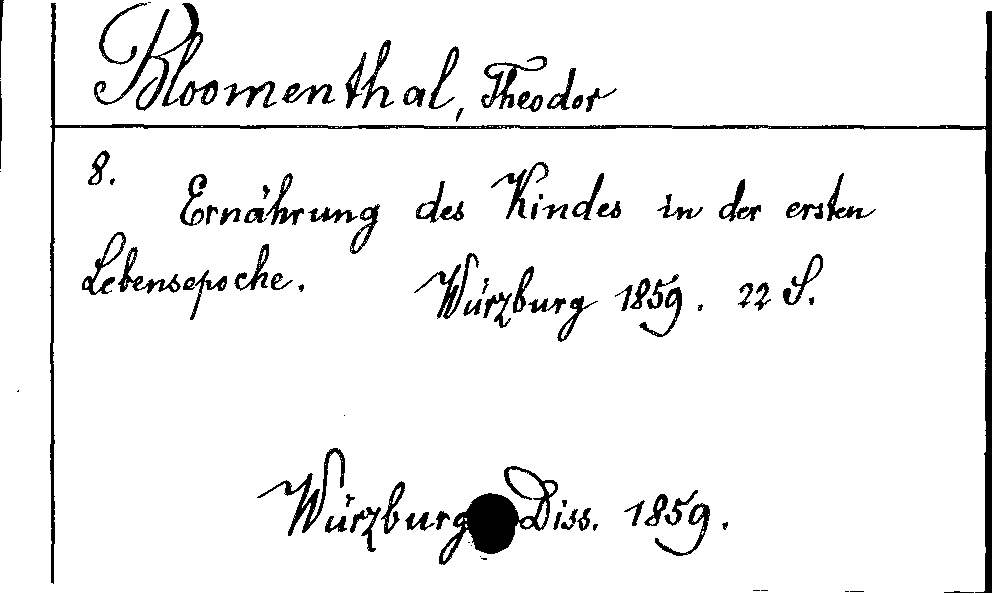 Bloomenthal, Theodor
8.
Ernährung des Kindes in der ersten
Lebensepoche. Würzburg 1859. 22 S.
Würzburg Diss. 1859.